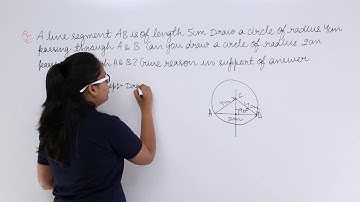 Q: A line segment AB is of length 5cm Draw a circle of radius 4cm
passing through A & B Can you draw a circle of radius 2cm
A & B? Give reason in support of answer
Steps:- Draw
C
4cm 4cm
90°
A B
5cm